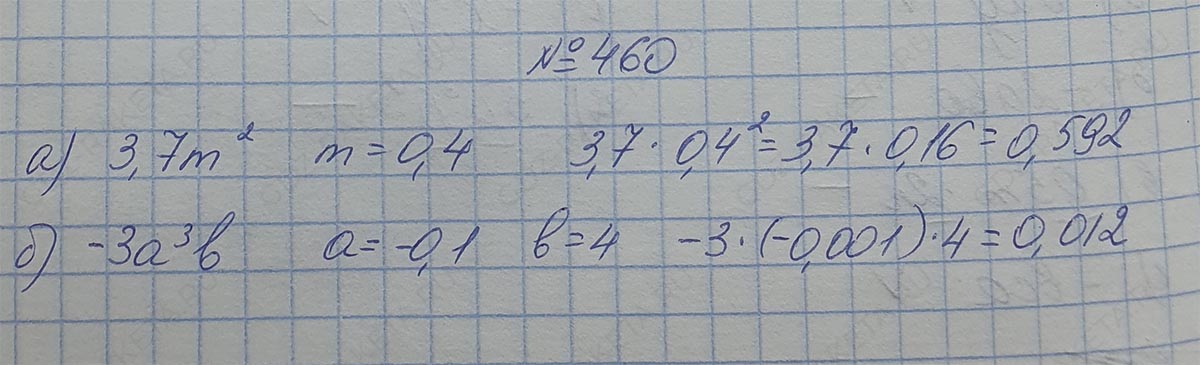 № 460
а) 3,7m² m = 0,4 3,7 · 0,4² = 3,7 · 0,16 = 0,592
б) -3a³b a = -0,1 b = 4 -3 · (-0,001) · 4 = 0,012